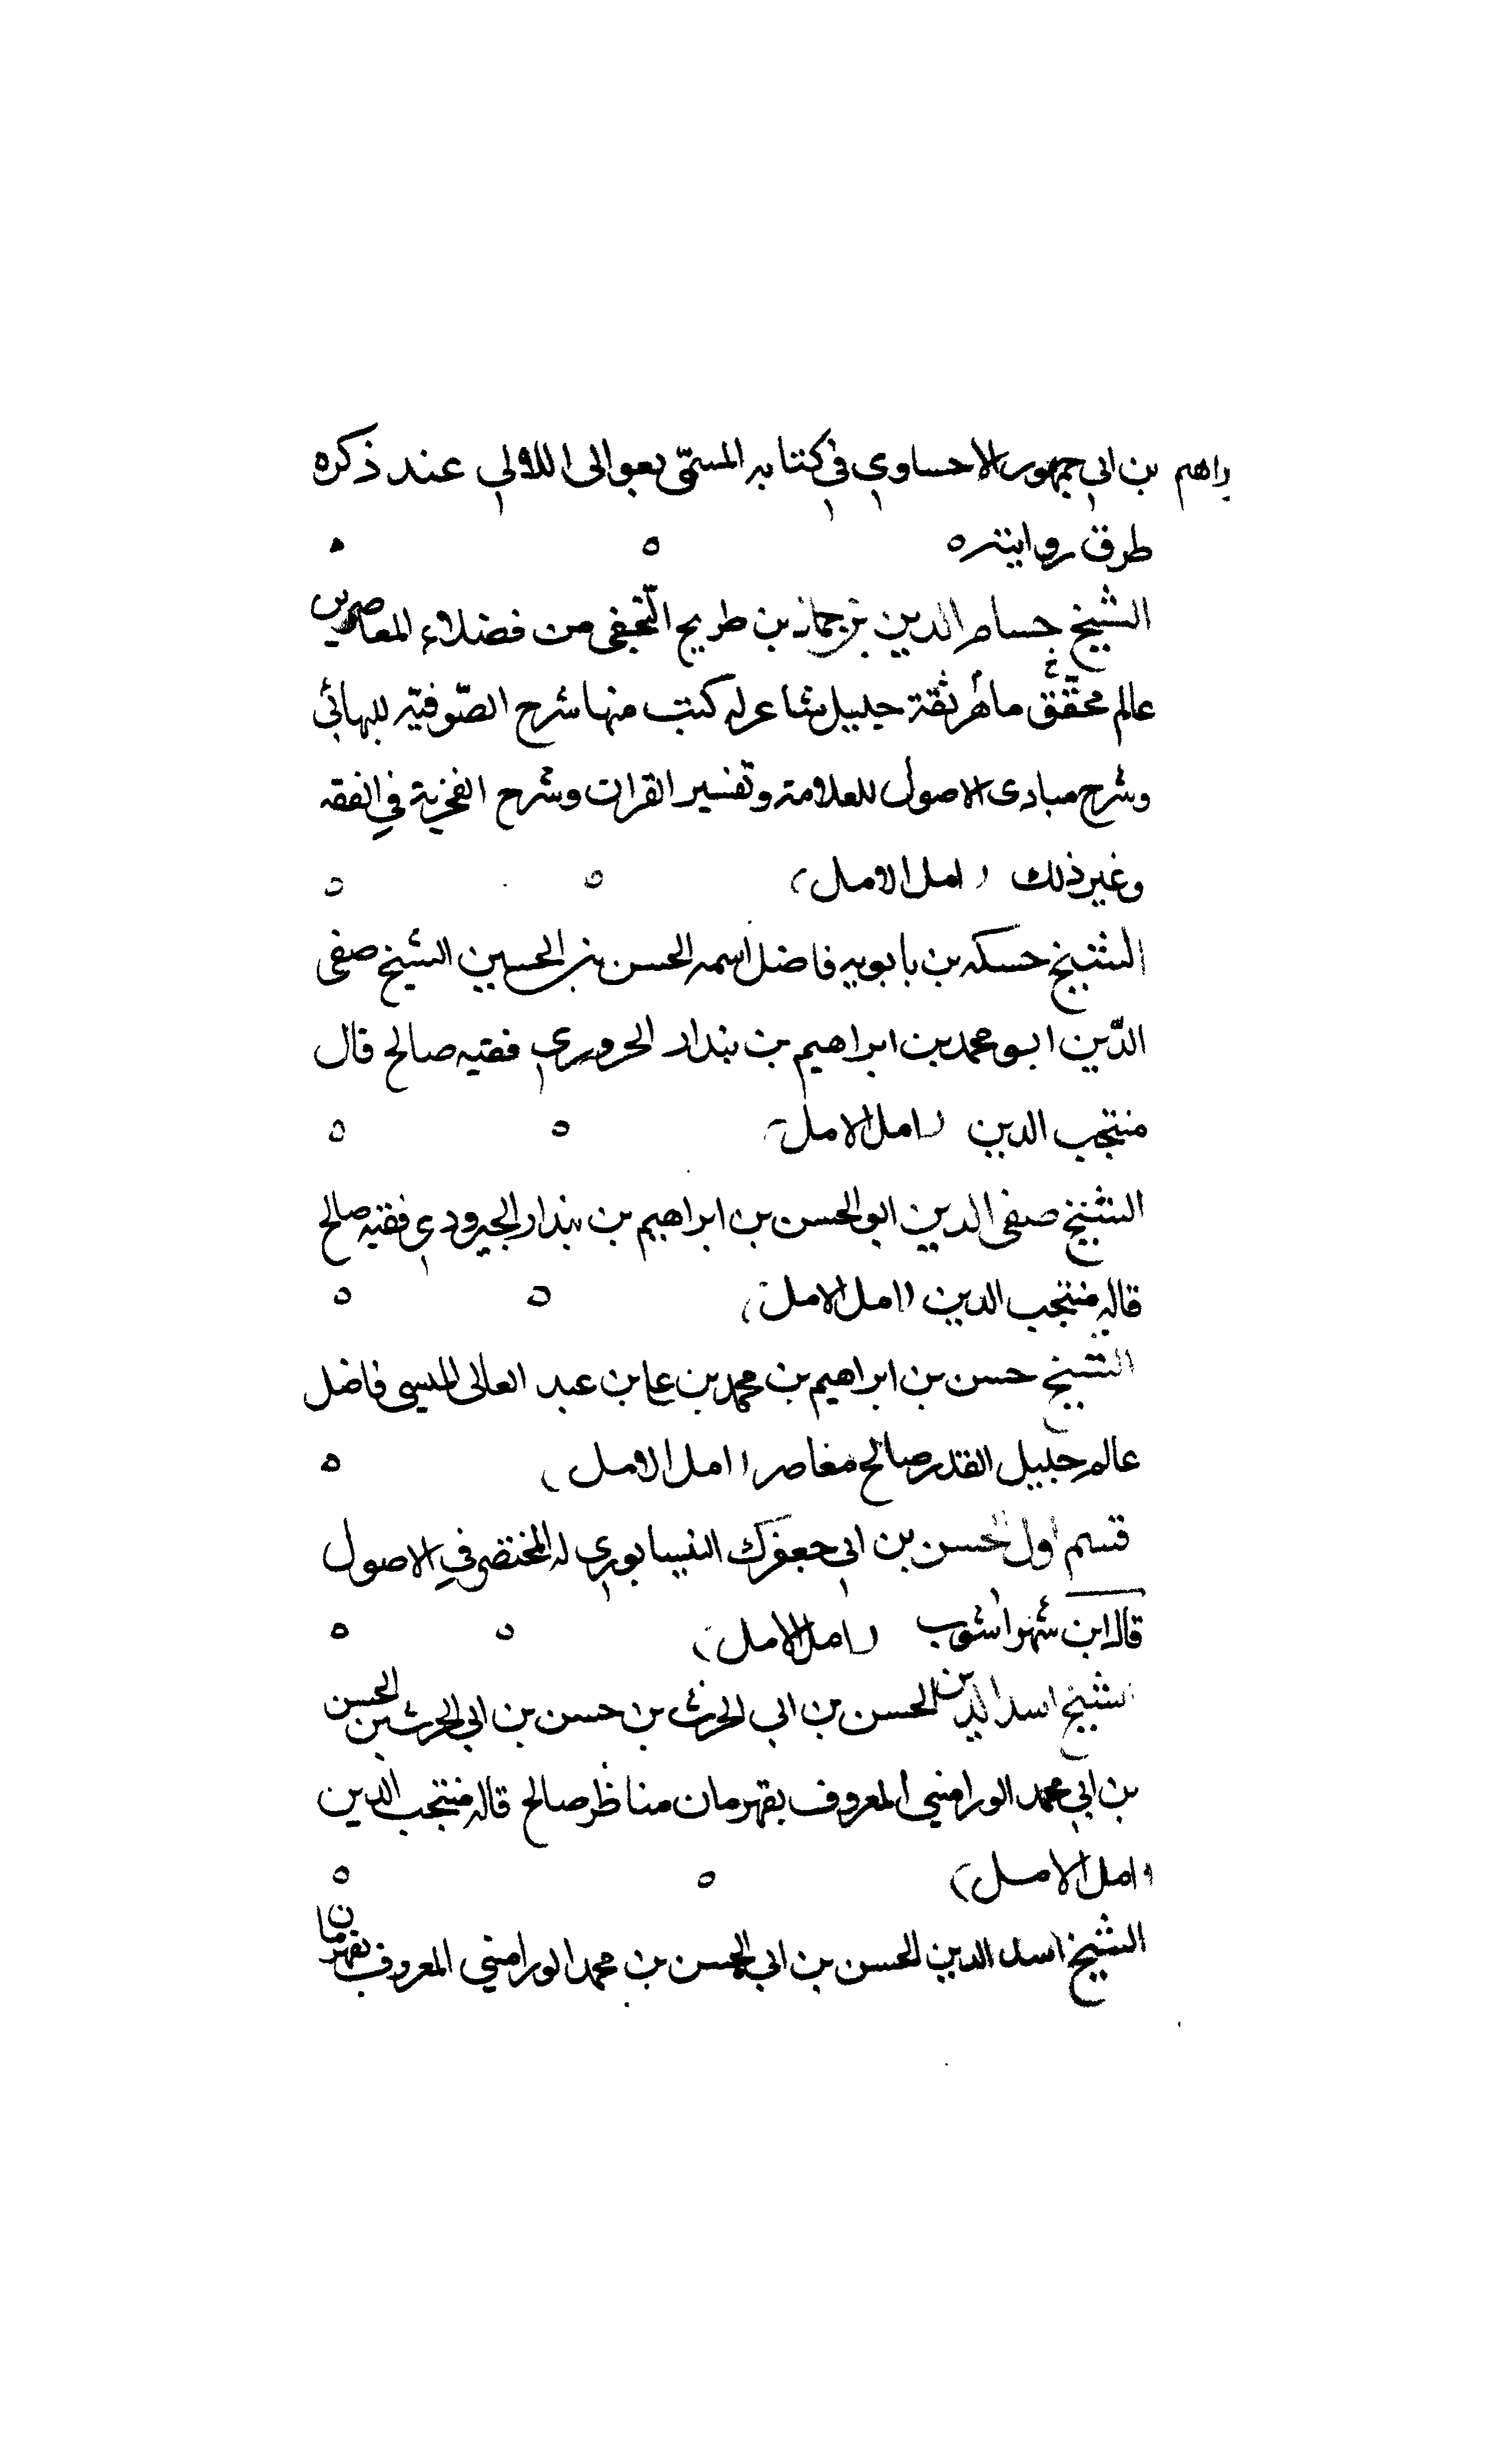 راهم بن ابي جمهور الاحساوي في كتابه المسمّى بعوالى اللالي عند ذكره
طرق روايته
الشيخ حسام الدين بن جمال بن طريح النّجفى من فضلاء المعاصرين
عالم محقّق ماهر ثقة جليل شاعر له كتب منها شرح الصّوفيّه للبهائي
وشرح مبادى الاصول للعلامة وتفسير القران وشرح الفخرية في الفقه
وغير ذلك (امل الامل)
الشيخ حسكه بن بابويه فاضل اسمه الحسن بن الحسين الشيخ صفى
الدّين ابو محمد بن ابراهيم بن بندار الحروري فقيه صالح قال
منتجب الدين (امل الامل)
الشيخ صفى الدين ابو الحسن بن ابراهيم بن بندار الجيرودي فقيه صالح
قاله منتجب الدين (امل الامل)
الشيخ حسن بن ابراهيم بن محمد بن على بن عبد العالى الميسى فاضل
عالم جليل القدر صالح معاصر (امل الامل)
قسم اول حسن بن ابي جعفرك النيسابوري له المختصر في الاصول
قاله ابن شهراشوب (امل الامل)
الشيخ اسد الدين الحسن بن ابي الحرث بن حسن بن ابي الحرث بن الحسن
بن ابي محمد الورامنيي المعروف بقهرمان مناظر صالح قاله منتجب الدين
(امل الامل)
الشيخ اسد الدين الحسن بن ابي الحسن بن محمد الورامنيي المعروف بقهرمان